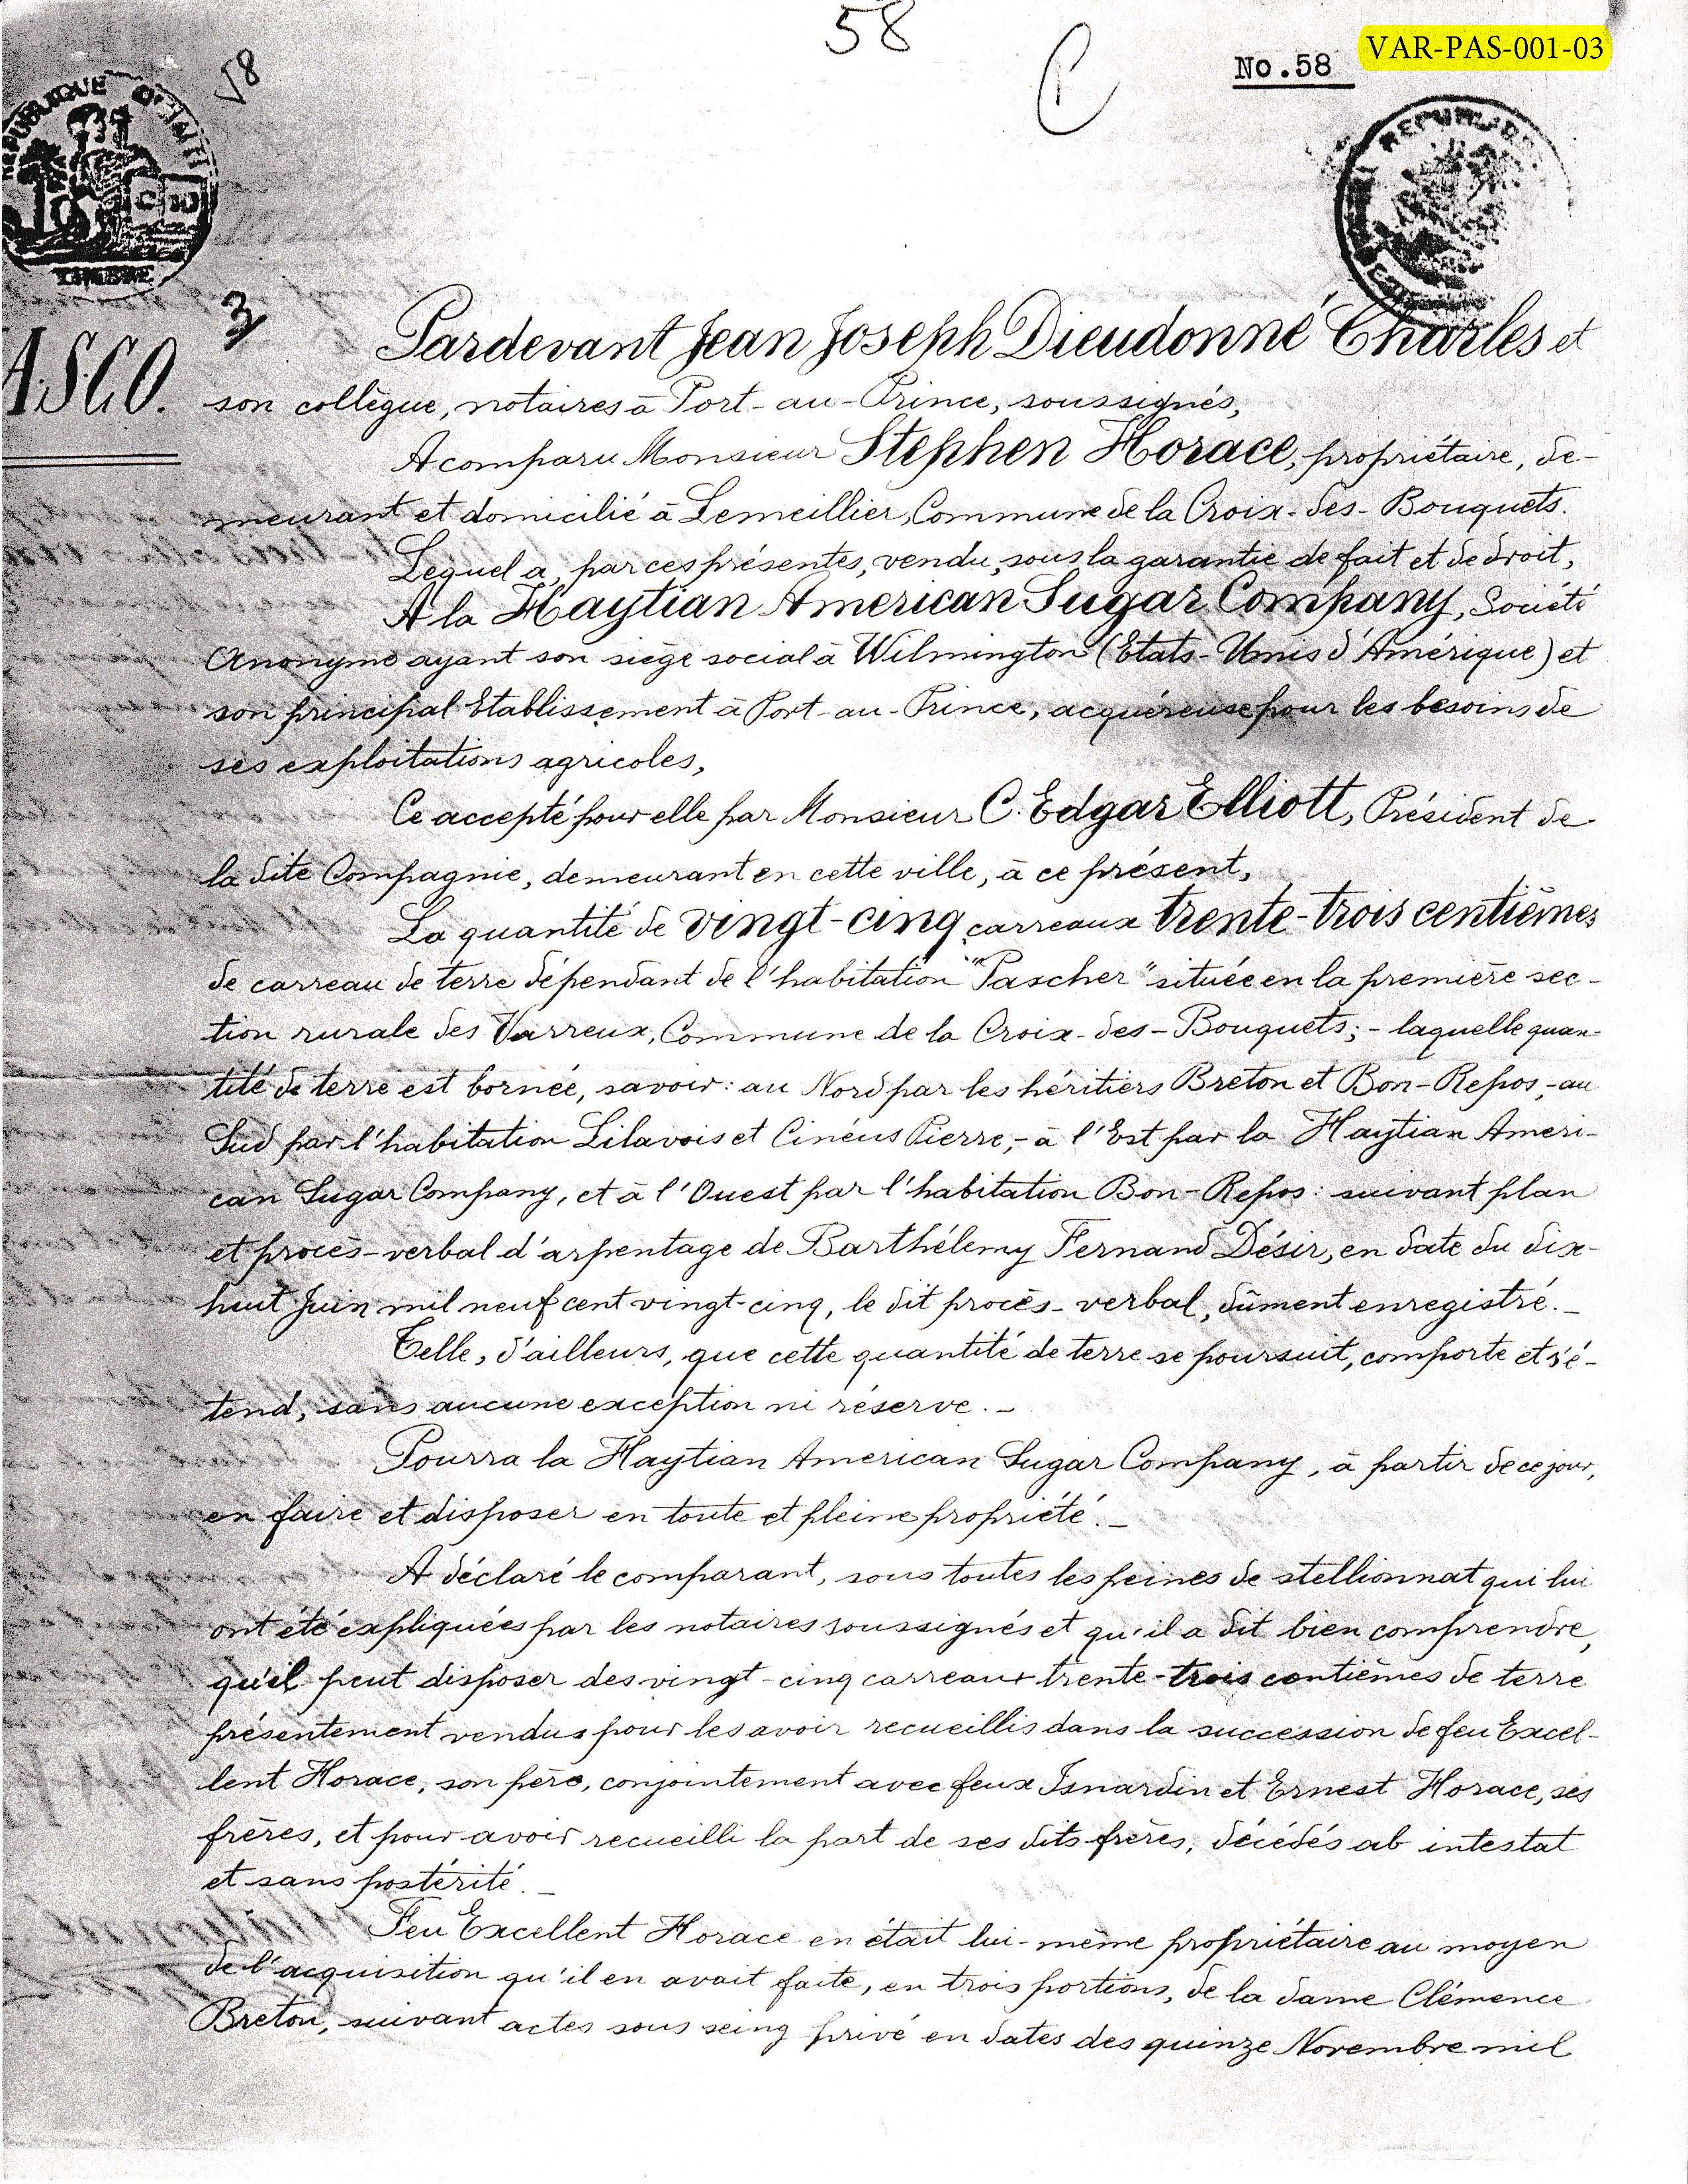 58
No. 58
VAR-PAS-001-03
REPUBLIQUE D'HAITI
TIMBRE
REPUBLI
3
ASCO.
Pardevant Jean Joseph Dieudonné Charles et
son collègue, notaires à Port-au-Prince, soussignés,
A comparu Monsieur Stephen Horace, propriétaire, de-
meurant et domicilié à Lemeillier, Commune de la Croix-des-Bouquets.
Lequel a, par ces présentes, vendu, sous la garantie de fait et de droit,
A la Haytian American Sugar Company, Société
Anonyme ayant son siège social à Wilmington (Etats-Unis d'Amérique) et
son principal Etablissement à Port-au-Prince, acquéreuse pour les besoins de
ses exploitations agricoles,
Ce accepté pour elle par Monsieur C. Edgar Elliott, Président de
la dite Compagnie, demeurant en cette ville, à ce présent,
La quantité de vingt-cinq carreaux trente-trois centièmes
de carreau de terre dépendant de l'habitation "Pascher" située en la première sec-
tion rurale des Varreux, Commune de la Croix-des-Bouquets; - laquelle quan-
tité de terre est bornée, savoir: au Nord par les héritiers Breton et Bon-Repos,- au
Sud par l'habitation Lilavois et Cinéus Pierre,- à l'Est par la Haytian Ameri-
can Sugar Company, et à l'Ouest par l'habitation Bon-Repos: suivant plan
et procès-verbal d'arpentage de Barthélemy Fernand Désir, en date du dix-
huit Juin mil neuf cent vingt-cinq, le dit procès-verbal, dûment enregistré._
Telle, d'ailleurs, que cette quantité de terre se poursuit, comporte et s'é-
tend, sans aucune exception ni réserve._
Pourra la Haytian American Sugar Company, à partir de ce jour,
en faire et disposer en toute et pleine propriété._
A déclaré le comparant, sous toutes les peines de stellionnat qui lui
ont été expliquées par les notaires soussignés et qu'il a dit bien comprendre,
qu'il peut disposer des vingt-cinq carreaux trente-trois centièmes de terre
présentement vendus pour les avoir recueillis dans la succession de feu Excel-
lent Horace, son père, conjointement avec feux Isnardin et Ernest Horace, ses
frères, et pour avoir recueilli la part de ses dits frères, décédés ab intestat
et sans postérité._
Feu Excellent Horace en était lui-même propriétaire au moyen
de l'acquisition qu'il en avait faite, en trois portions, de la dame Clémence
Breton, suivant actes sous seing privé en dates des quinze Novembre mil